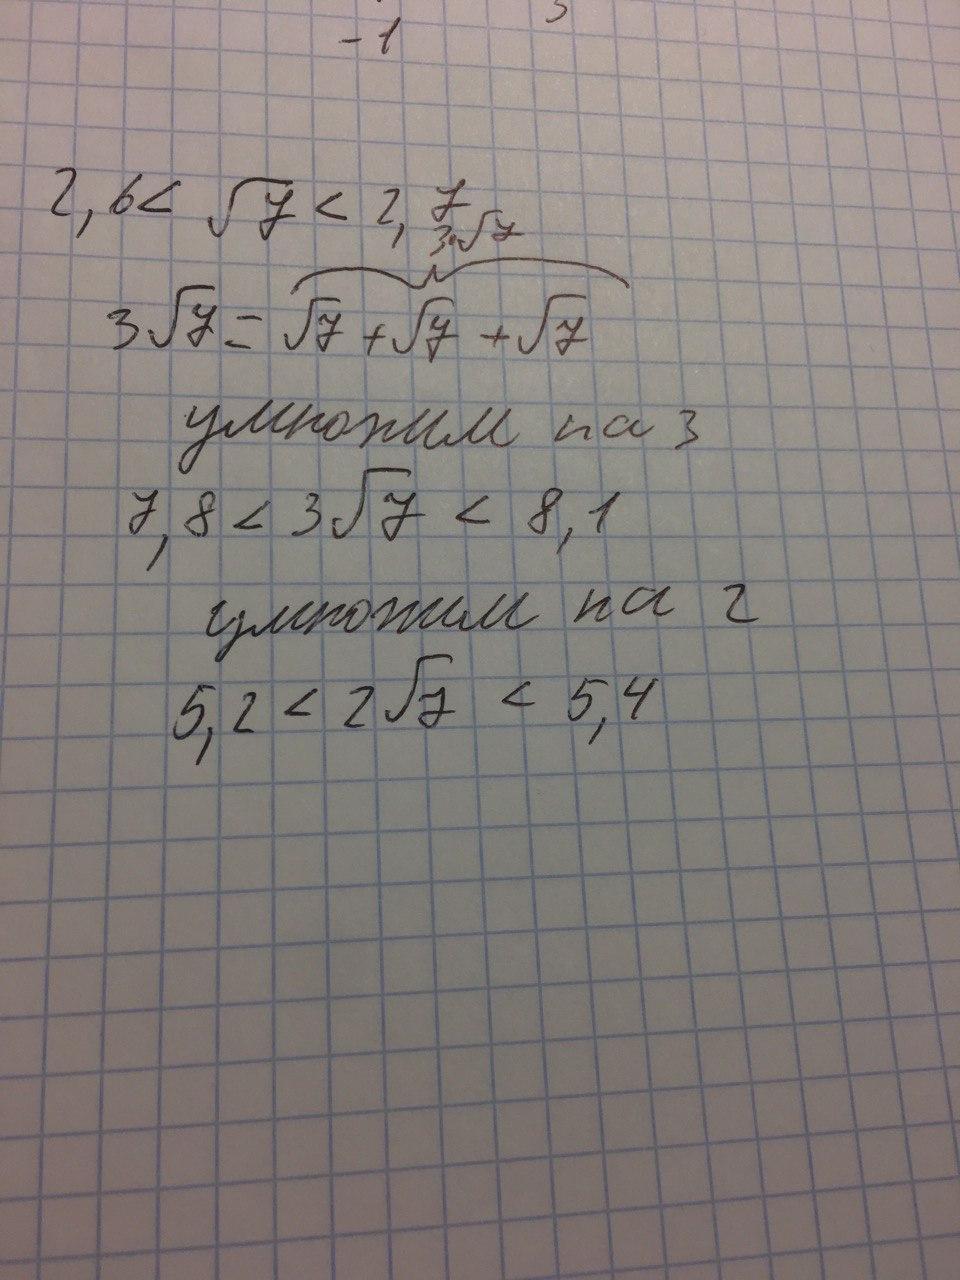 -1
2,6 < √7 < 2,7
3·√7
3√7 = √7 + √7 + √7
умножим на 3
7,8 < 3√7 < 8,1
умножим на 2
5,2 < 2√7 < 5,4